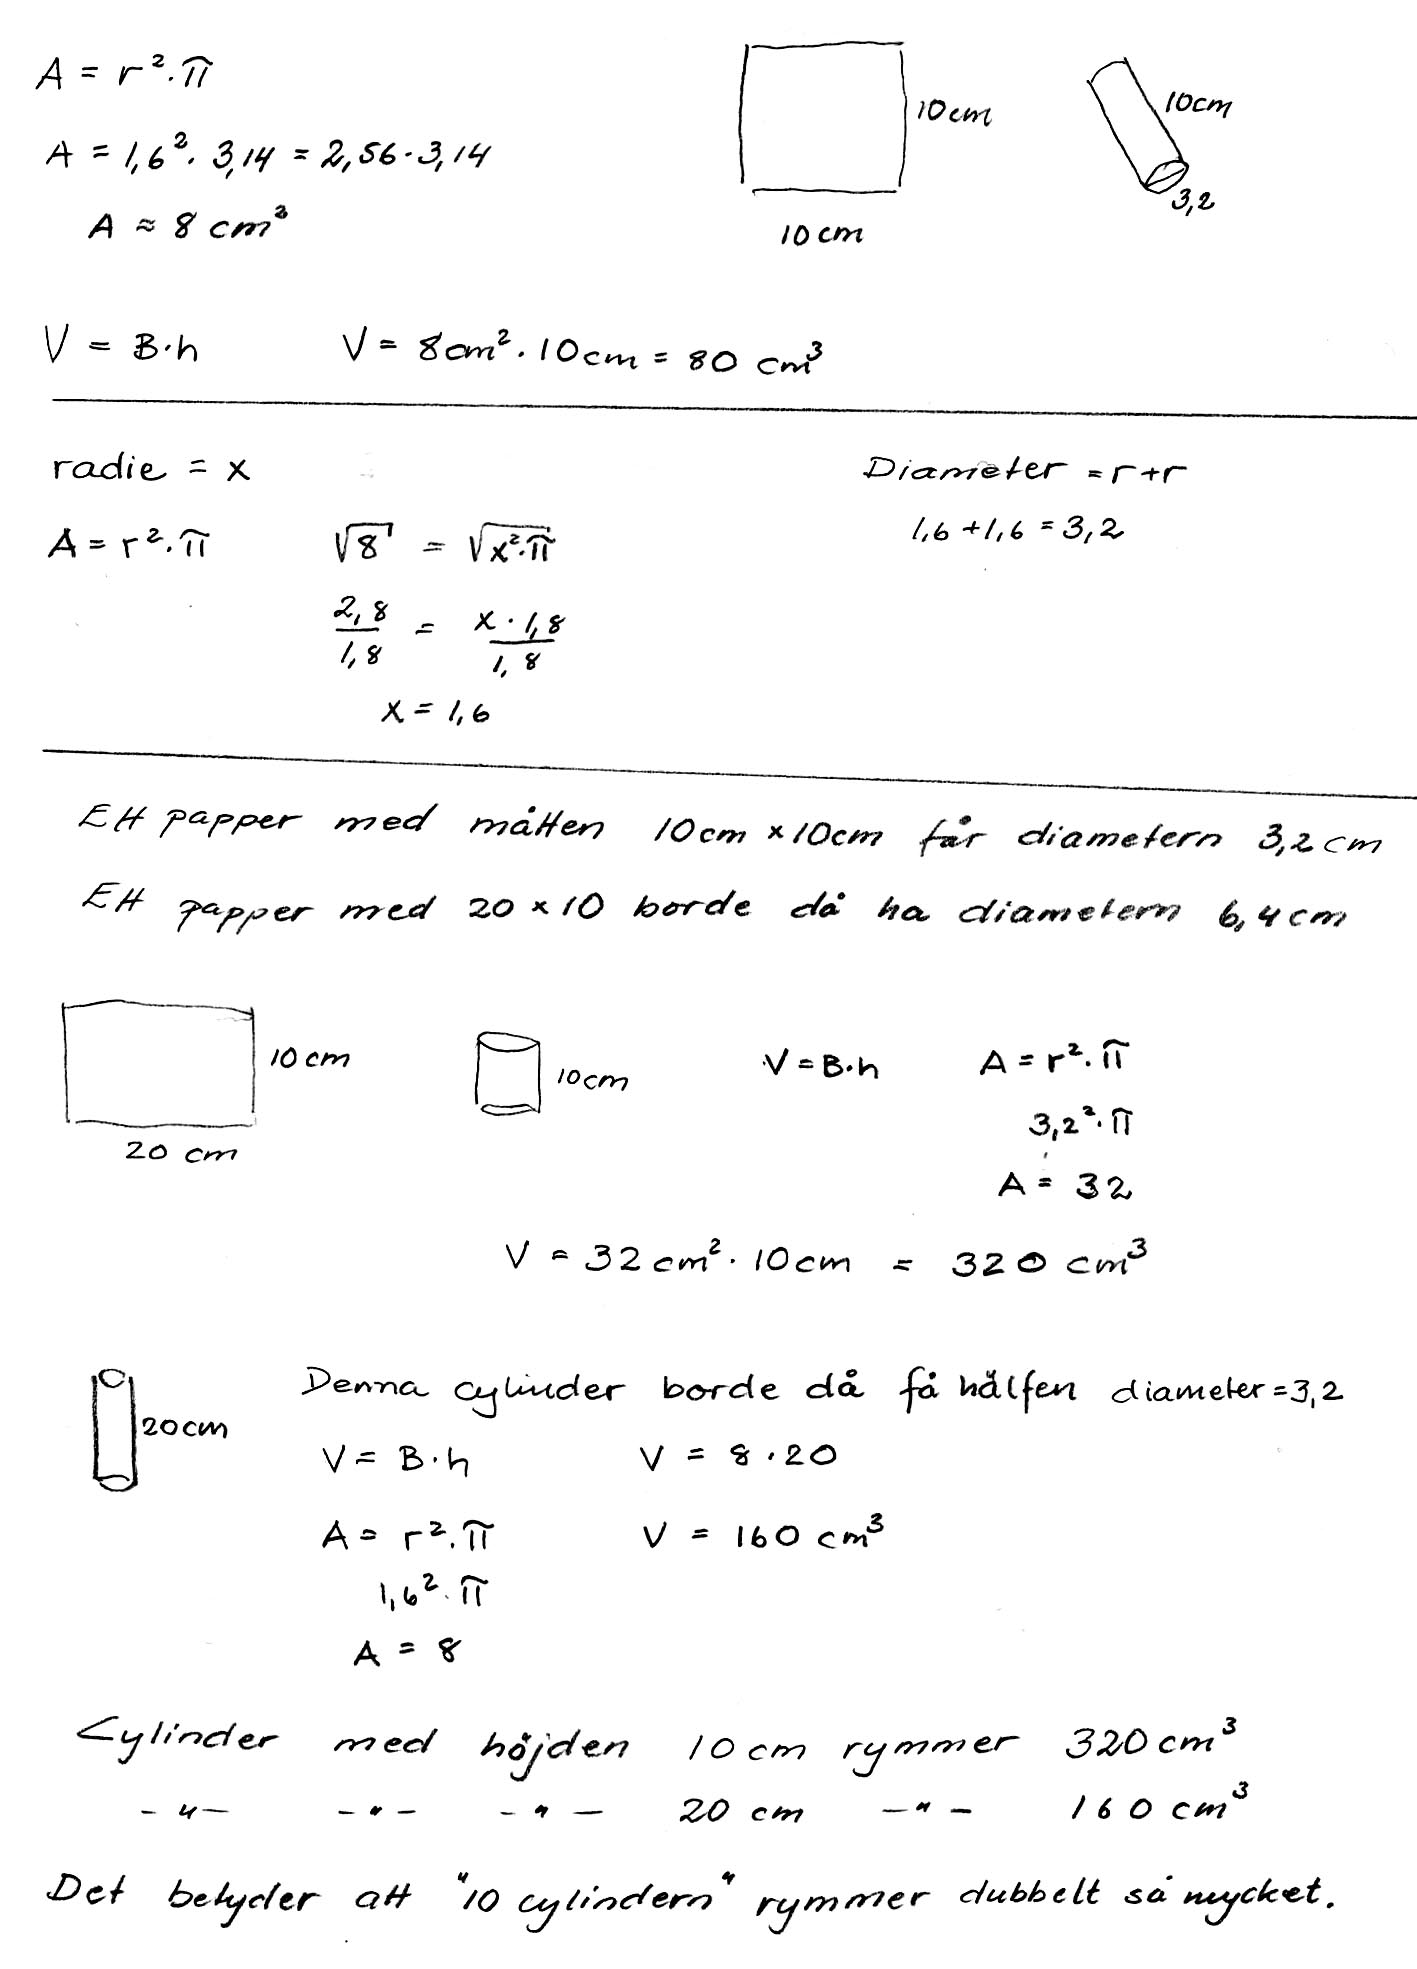 A = r²·π
10cm
10cm
A = 1,6²· 3,14 = 2,56·3,14
3,2
A ≈ 8 cm²
10 cm
V = B·h V = 8cm²·10cm = 80 cm³
radie = x Diameter = r+r
A = r²·π √8 = √x²·π 1,6+1,6 = 3,2
2,8/1,8 = x · 1,8/1,8
x = 1,6
Ett papper med måtten 10cm x 10cm får diametern 3,2cm
Ett papper med 20 x 10 borde då ha diametern 6,4cm
10 cm 10cm V = B·h A = r²·π
3,2²·π
20 cm
A = 32
V = 32cm²·10cm = 320 cm³
Denna cylinder borde då få hälften diameter = 3,2
20cm
V = B·h V = 8·20
A = r²·π V = 160 cm³
1,6²·π
A = 8
Cylinder med höjden 10cm rymmer 320cm³
-"- -"- -"- 20 cm -"- 160 cm³
Det betyder att "10 cylindern" rymmer dubbelt så mycket.